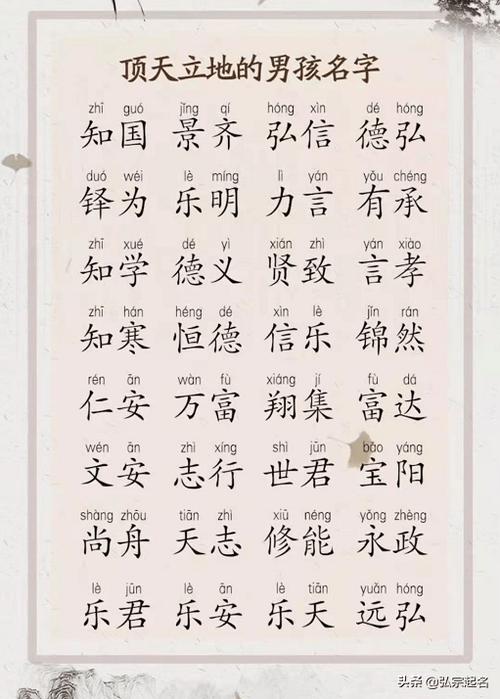 顶天立地的男孩名字
zhī guó jǐng qí hóng xìn dé hóng
知国 景齐 弘信 德弘
duó wéi lè míng lì yán yǒu chéng
铎为 乐明 力言 有承
zhī xué dé yì xián zhì yán xiào
知学 德义 贤致 言孝
zhī hán héng dé xìn lè jǐn rán
知寒 恒德 信乐 锦然
rén ān wàn fù xiáng jí fù dá
仁安 万富 翔集 富达
wén ān zhì xíng shì jūn bǎo yáng
文安 志行 世君 宝阳
shàng zhōu tiān zhì xiū néng yǒng zhèng
尚舟 天志 修能 永政
lè jūn lè ān lè tiān yuǎn hóng
乐君 乐安 乐天 远弘
头条 @弘宗起名